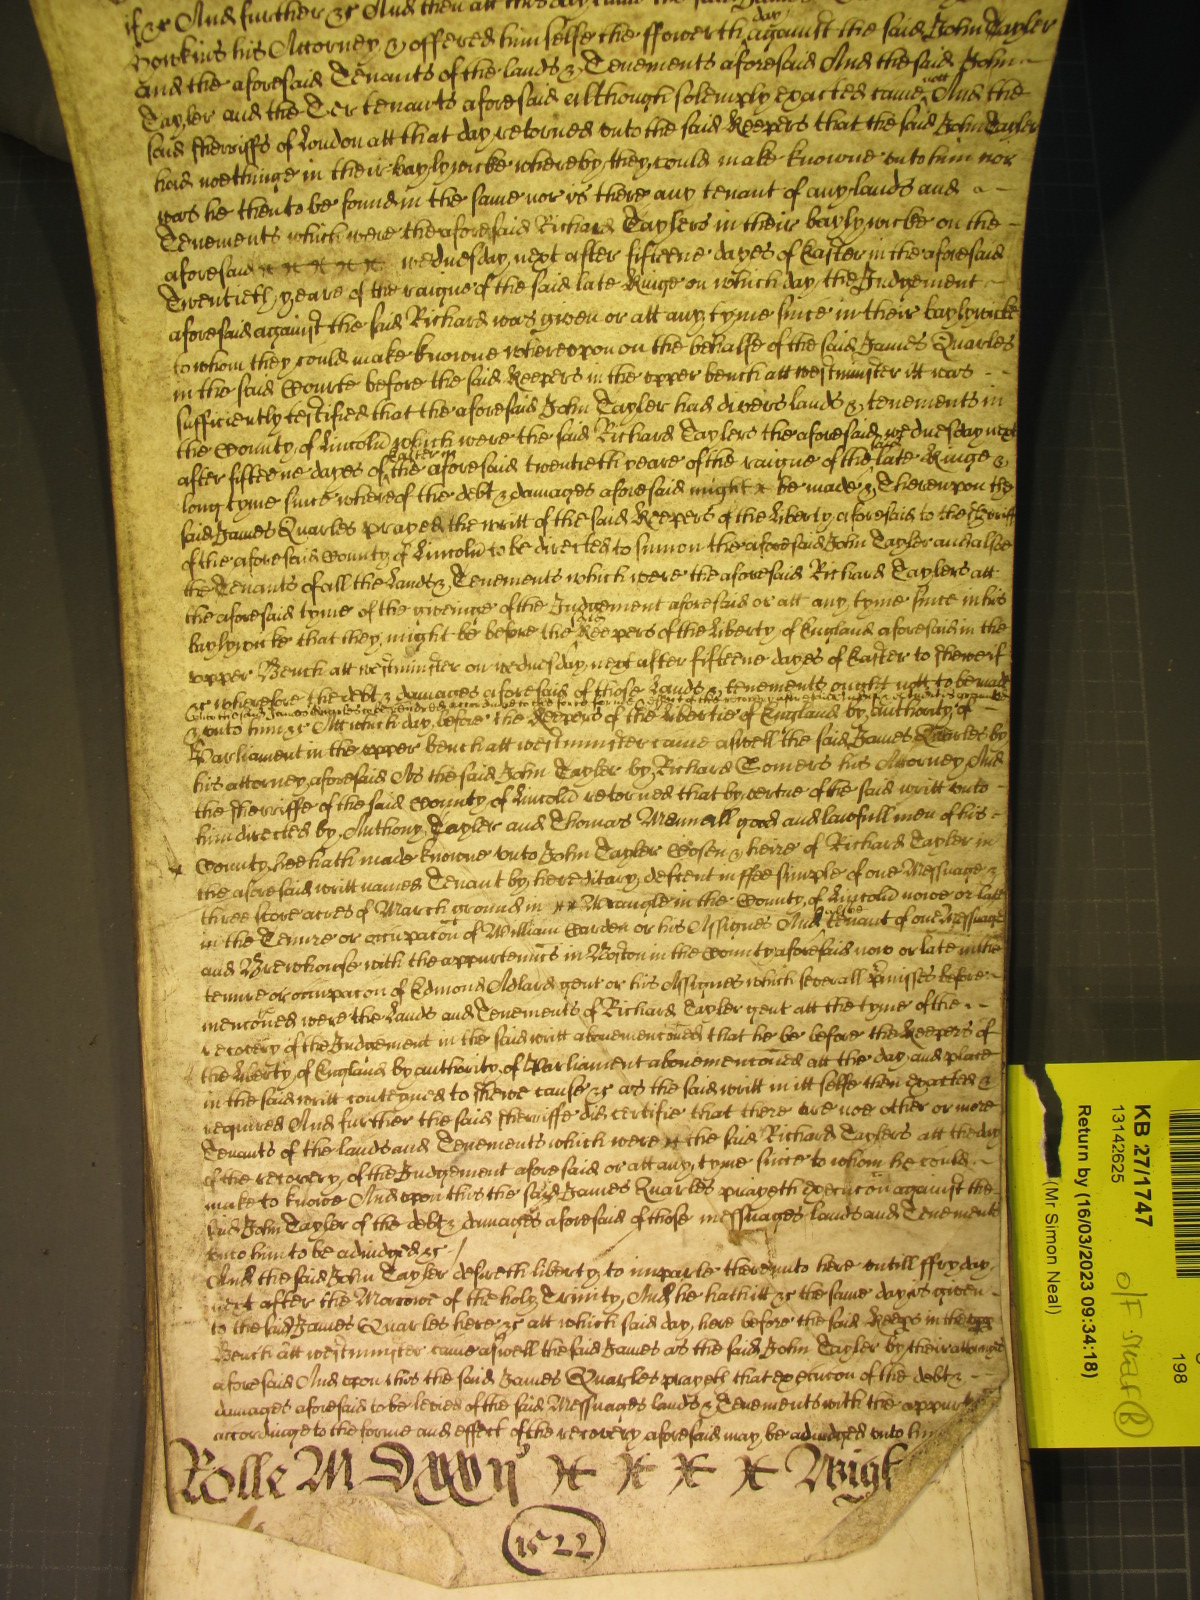 if &c And further &c And then att this day came the said James
Hookins his Attorney & offered himselfe the ffowerth day against the said John Tayler
and the aforesaid Tenants of the lands & Tenements aforesaid And the said John
Tayler and the Ter tenants aforesaid although solemply exacted came nott And the
said Sherriffs of London att that day retorned unto the said Keepers that the said John Tayler
had noethinge in their baylywicke whereby they could make knowne unto him nor
was he then to be found in the same nor is there any tenant of any lands and
Tenements which were the aforesaid Richard Taylers in their baylywicke on the
aforesaid wednesday next after fifteene dayes of Easter in the aforesaid
Twentieth yeare of the raigne of the said late Kinge on which day the Judgement
aforesaid against the said Richard was given or att any tyme since in their baylywicke
to whom they could make knowne whereupon on the behalfe of the said James Quarles
in the said Courte before the said Keepers in the upper bench att westminster itt was
sufficiently testified that the aforesaid John Tayler had divers lands & tenements in
the County of Lincoln which were the said Richard Taylers the aforesaid wednesday next
after fifteene dayes of Easter in the aforesaid twentieth yeare of the raigne of the late Kinge &
long tyme since whereof the debt & damages aforesaid might be made & Thereupon the
said James Quarles prayed the writt of the said Keepers of the Liberty aforesaid to the Sherriff
of the aforesaid County of Lincoln to be directed to sumon the aforesaid John Tayler and alsoe
the Tenants of all the Lands & Tenements which were the aforesaid Richard Taylers att
the aforesaid tyme of the giveinge of the Judgement aforesaid or att any tyme since in his
baylywicke that they might be before the said Keepers of the Liberty of England aforesaid in the
upper Bench att westminster on wednesday next after fifteene dayes of Easter to shewe if
&c wherefore the debt & damages aforesaid of those Lands & tenements ought nott to be made
& unto him &c Att which day before the Keepers of the Libertie of England by authority of
Parliament in the upper bench att westminster came aswell the said James Quarles by
his attorney aforesaid As the said John Tayler by Richard Somers his Attorney And
the sherriffe of the said County of Lincoln retorned that by vertue of the said writt unto
him directed by Anthony Tayler and Thomas Mennell good and lawfull men of his
County hee hath made knowne unto John Tayler Cosen & heire of Richard Tayler in
the aforesaid writt named Tenant by hereditary descent in ffee simple of one Messuage &
three score acres of Marsh ground in Wrangle in the County of Lincoln nowe or late
in the Tenure or occupacon of William Warden or his Assignes And alsoe tenant of one Messuage
and Brewhowse with the appurtenncs in Boston in the County aforesaid now or late in the
tenure or occupacon of Edmond Adlard gent or his Assignes which severall pmisses before
menconed were the Lands and Tenements of Richard Tayler gent att the tyme of the
recovery of the Judgement in the said writt abovemenconed that he be before the Keepers of
the Liberty of England by authority of Parliament abovemenconed att the day and place
in the said writt conteyned to shewe cause &c as the said writt in itt selfe then exacted &
required And further the said sherriffe did certifie that there are noe other or more
Tenants of the lands and Tenements which were the said Richard Taylers att the day
of the recovery of the Judgement aforesaid or att any tyme since to whom he could
make to knowe And upon this the said James Quarles prayeth execucon against the
said John Tayler of the debt & damages aforesaid of those messuages lands and Tenements
unto him to be adiudged &c
And the said John Tayler desireth liberty to imparle thereunto here untill ffryday
next after the Morrowe of the holy Trinity And he hath itt &c the same day is given
to the said James Quarles here &c att which said day here before the said Keeps in the upp
Bench att westminster came aswell the said James as the said John Tayler by their attornyes
aforesaid And upon this the said James Quarles prayeth that execucon of the debt &
damages aforesaid to be levied of the said Messuages lands & Tenements with the appurt
accordinge to the forme and effect of the recovery aforesaid may be adiudged unto him
Rolle M D xxij Wigh
1522
KB 27/1747
13142625
Return by (16/03/2023 09:34:18)
(Mr Simon Neal)
198